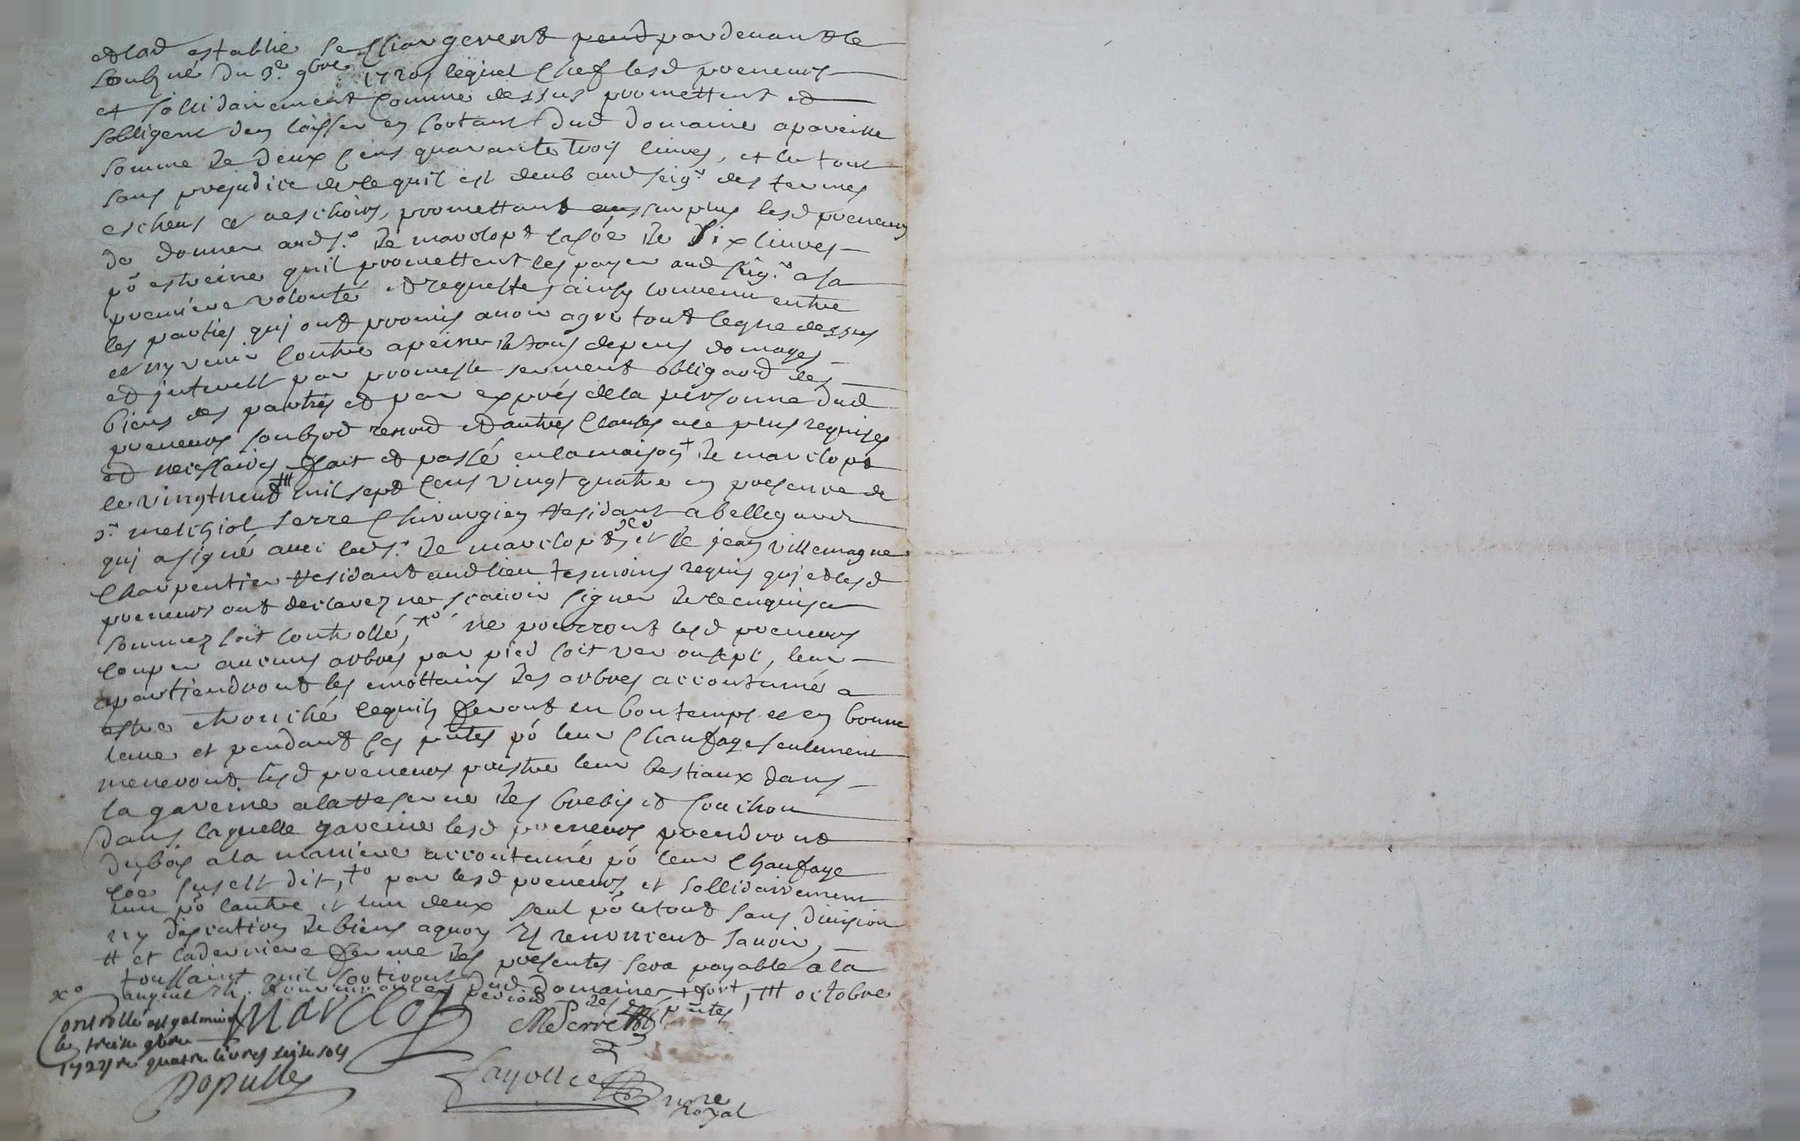 et lad establie se chargerent par devant le
soubzné du 3e 9bre 1720, lequel chef lesd preneurs
et sollidairement comme dessus promettent et
sobligent den laisser en sortant dud domaine apareille
somme de deux cens quarante trois livres, et le tout
sans prejudice de ce quil est deub aud seigr des termes
escheus et a eschoirs, promettant en surplus lesd preneurs
de donner aud sr de marclopt six livres
po estreine quil promettent les payer aud seigr a sa
premiere volonté et requeste, ainsy convenu entre
les parties qui ont promis avoir agré tout ce que dessus
et ny venir contre apeine de tous depens domages
et interestz par promesse serment obligaõn des
biens des parties et par exprés de la personne dud
preneurs soubzon renoõn et autres clauses a ce plus requises
et necessaires fait et passé en la maison + de marclopt
le vingtneuf ttt mil sept cens vingt quatre en presence de
sr melchiol serre chirurgien residant a bellegarde
qui a signé avec led sr de marclopt et de jean villemagne
charpentier residant aud lieu tesmoins requis qui et lesd
preneurs ont declarez ne scavoir signer de ce enquis et
sommez soit controllé, xo ne pourront lesd preneurs
couper aucuns arbres par pied soit ver ou sept, leur
apartiendront les emottains des arbres accoutumé a
estre etronché lequils feront en bon temps et en bonne
lune et pendant ces pntes po leur chaufage seulement
meneront lesd preneurs paistre leur bestiaux dans
la gareine a la reserve des brebis et couchon
dans laquelle gareine lesd preneurs prendront
du bois a la maniere accoutumé po leur chaufage
coe susest dit, to par lesd preneurs et sollidairement
lun po lautre et lun deux seul po le tout sans division
ny discution de biens a quoy ils renoncent savoir,
tt et la derniere ferme des presentes sera payable a la
toussaint quil sortiront dud domaine + fort, ttt octobre
xo
marclopt
M Serre
des pntes
Controllé a st galmier
le treize 9bre
1724 re quatre livres seize sols
Populle
fayolle
nore
Royal